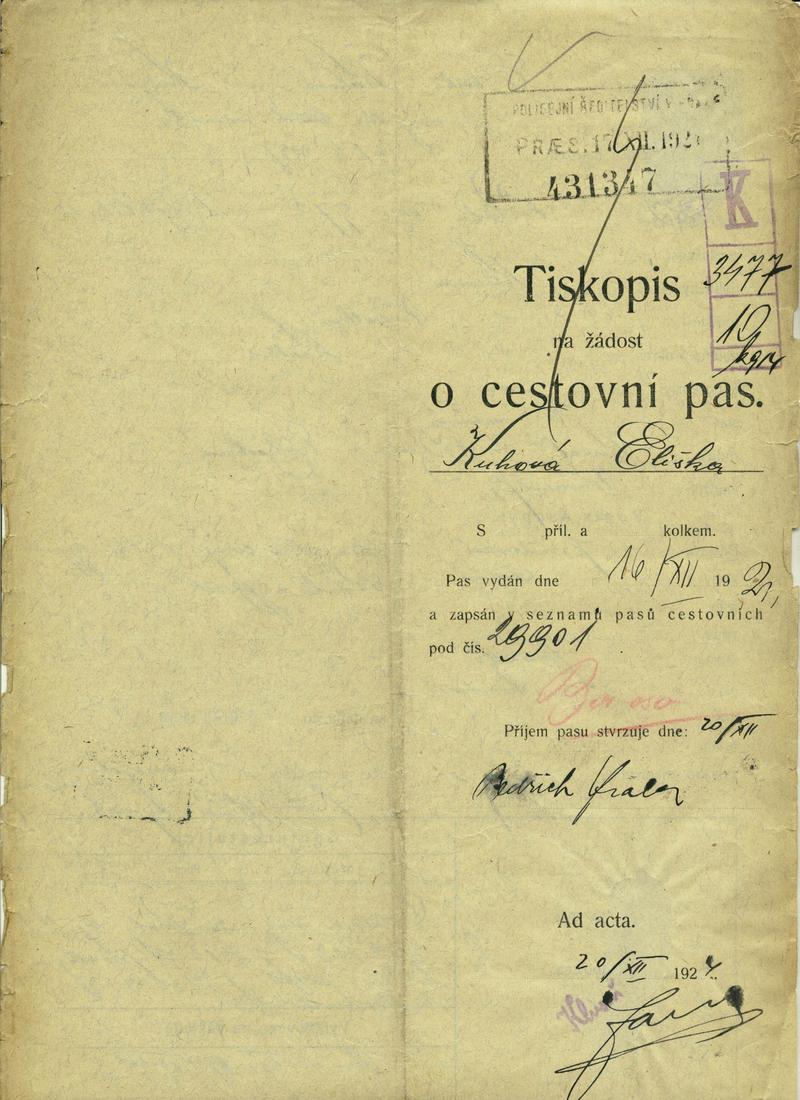 POLICEJNÍ ŘEDITELSTVÍ V
PRÆS. 17 XII. 192
431347
K
3477
19
Tiskopis
na žádost
o cestovní pas.
Eliška
S příl. a kolkem.
Pas vydán dne 16/XII 19
a zapsán v seznamu pasů cestovních
pod čís. 29901.
Příjem pasu stvrzuje dne: 20/XII
Bedřich
Ad acta.
20/XII 1924.